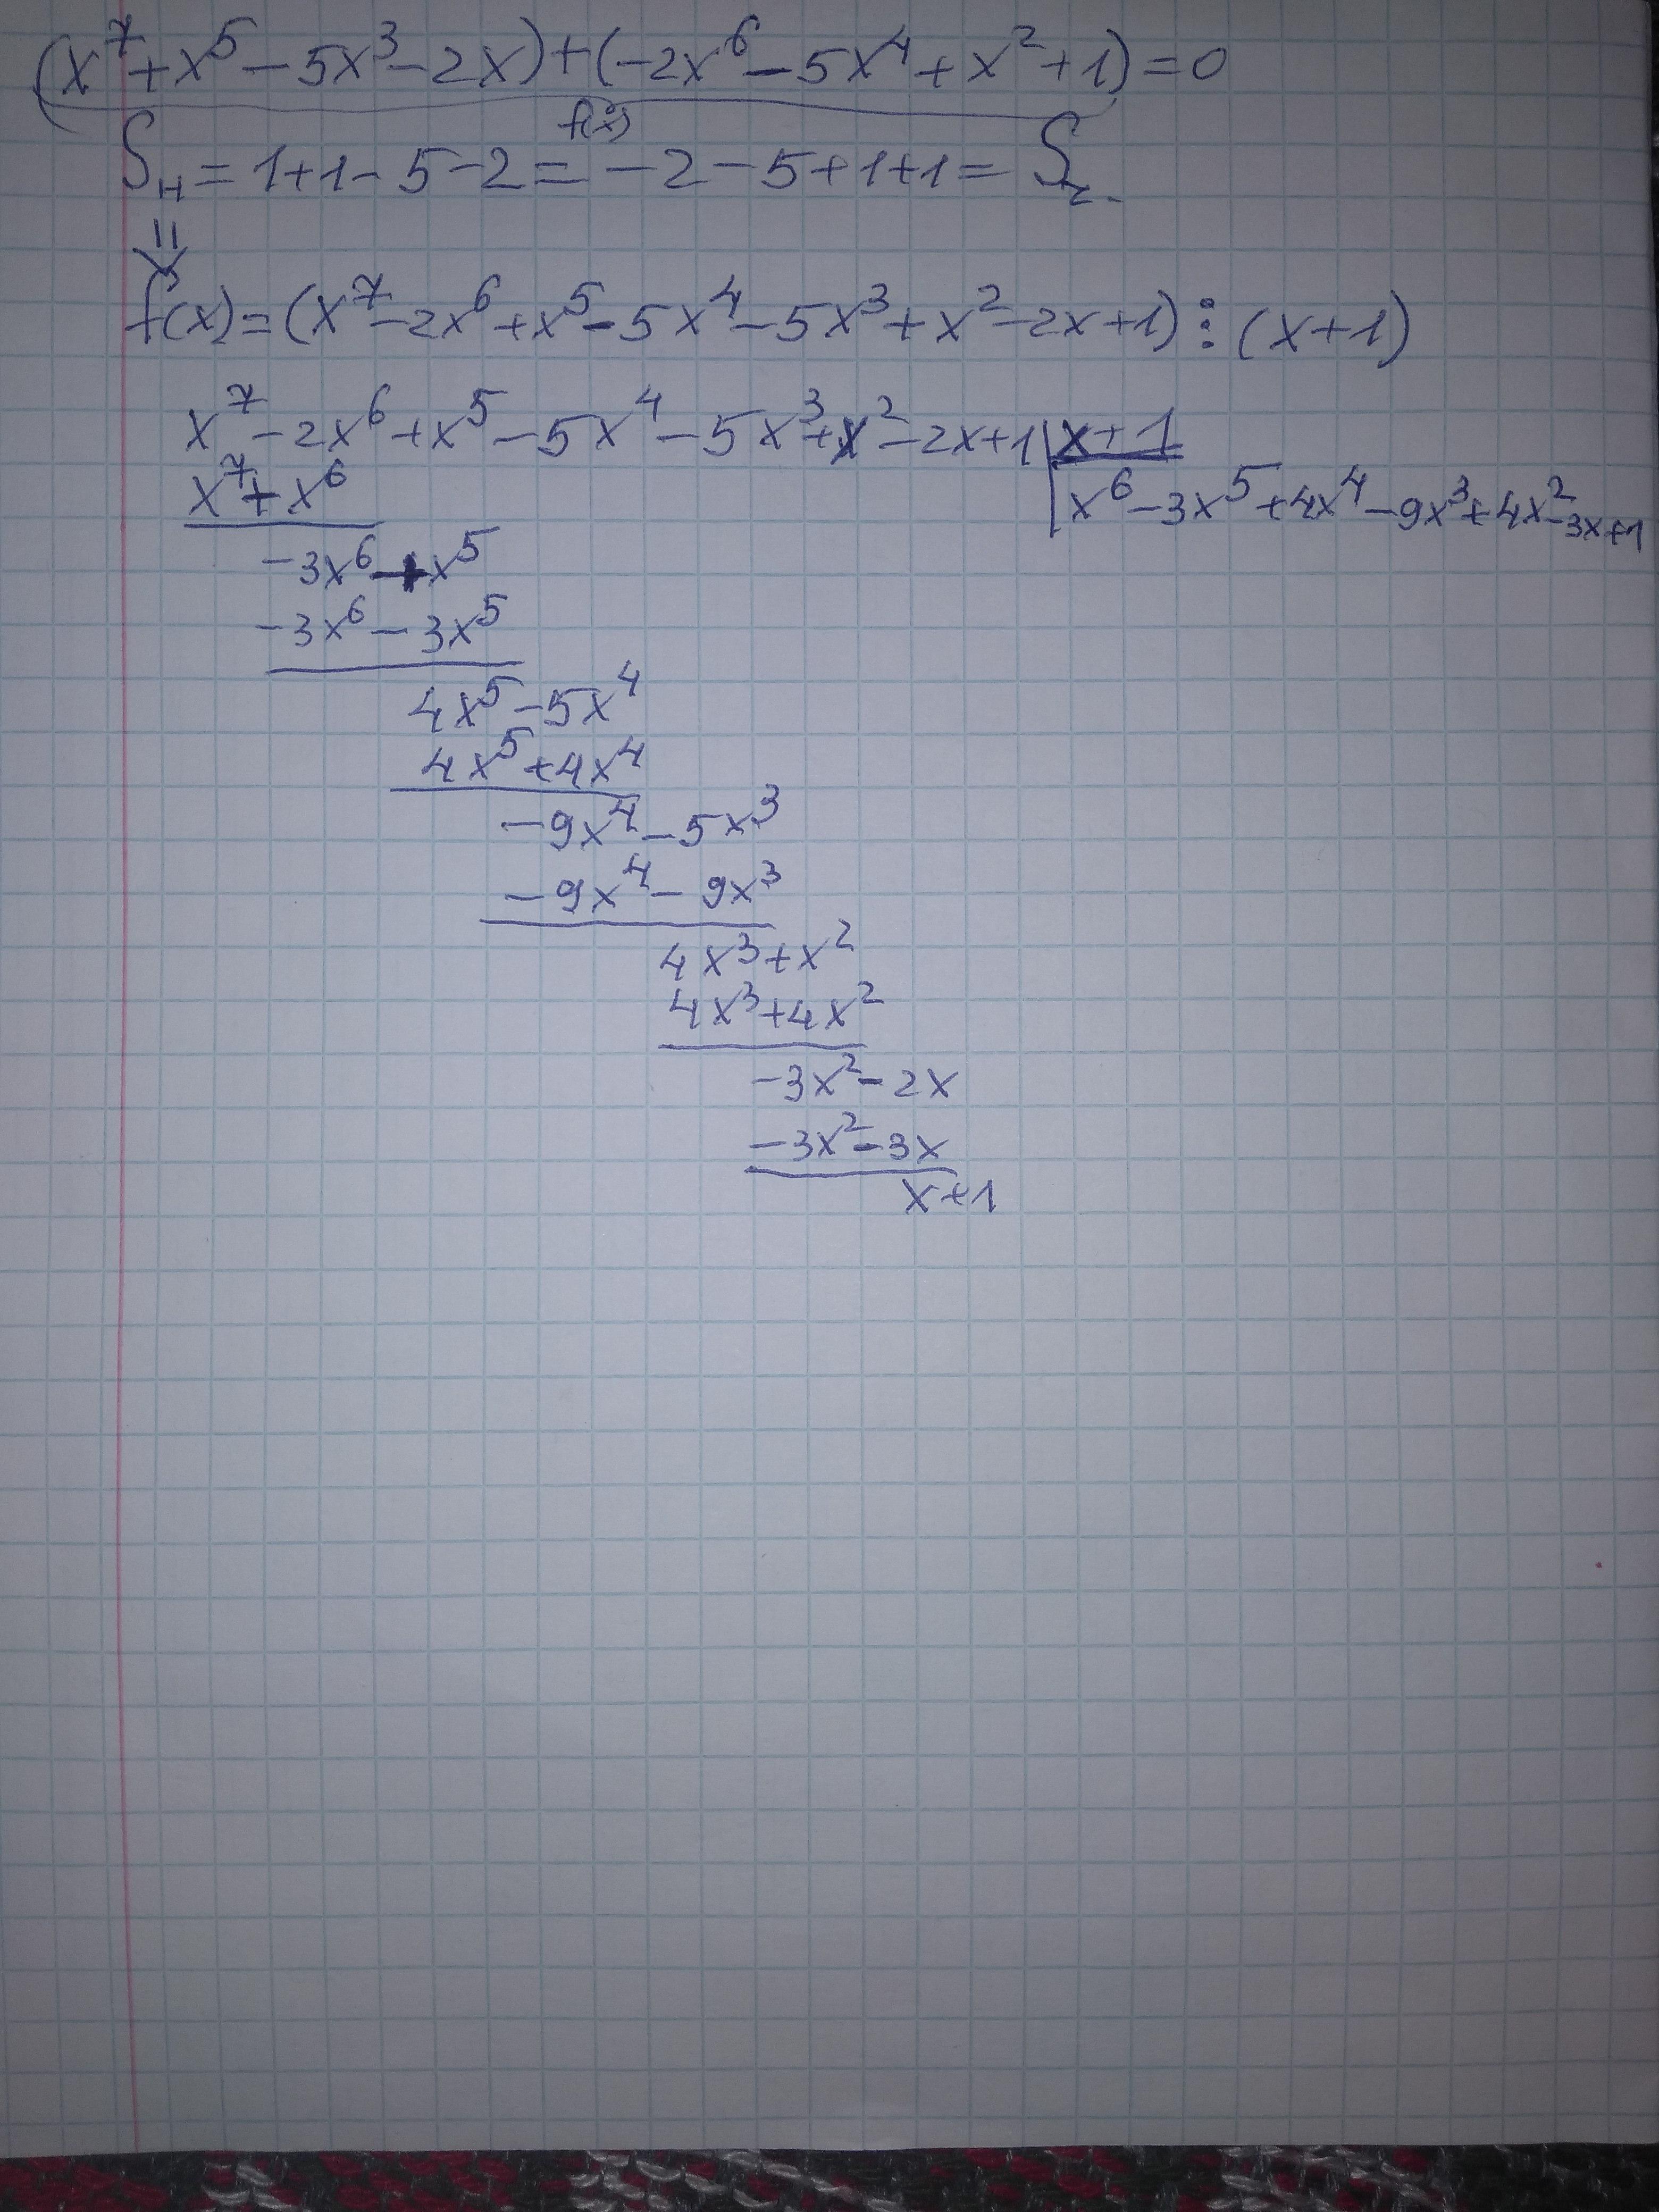 (x⁷+x⁵-5x³-2x)+(-2x⁶-5x⁴+x²+1)=0
f(x)
Sн=1+1-5-2=-2-5+1+1=Sг.
⇓
f(x)=(x⁷-2x⁶+x⁵-5x⁴-5x³+x²-2x+1)⋮(x+1)
x⁷-2x⁶+x⁵-5x⁴-5x³+x²-2x+1|x+1
x⁷+x⁶ |x⁶-3x⁵+4x⁴-9x³+4x²-3x+1
-3x⁶+x⁵
-3x⁶-3x⁵
4x⁵-5x⁴
4x⁵+4x⁴
-9x⁴-5x³
-9x⁴-9x³
4x³+x²
4x³+4x²
-3x²-2x
-3x²-3x
x+1